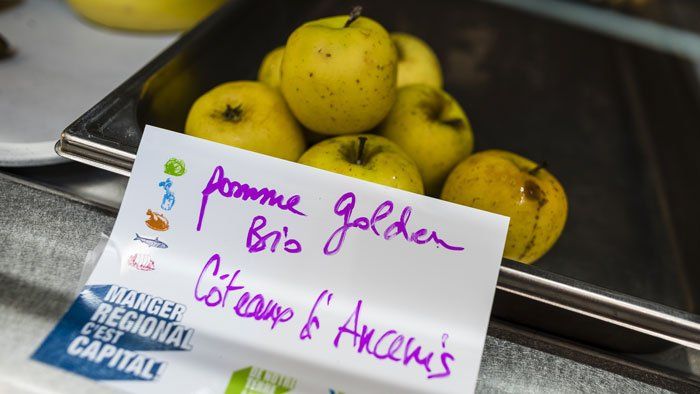 pomme golden
Bio
Côteaux d'Ancenis
MANGER
RÉGIONAL
C'EST
CAPITAL!
DE NOTRE